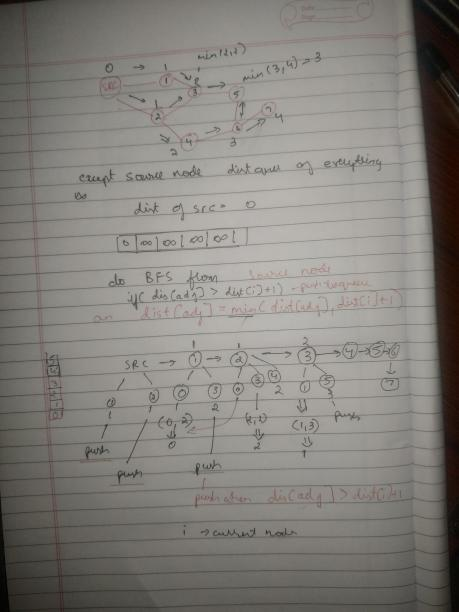 Date
Page
0 → 1 min(2,2)
SRC 1 2 3 → min(3,4) → 3
1 5
2 7
→ 4 → 6 4
2 3
except source node distances of everything
∞
dist of src = 0
0 | ∞ | ∞ | ∞ | ∞
do BFS from source node
if( dis(adj) > dist(i)+1) - push
dist(adj) = min( dist(adj), dist(i)+1)
1 1 2
SRC → 1 → 2 → 3 → 4 → 5 → 6
1 2 0 3 0 3 4 1 5 7
1 1 2 2 3
(0, 2) (2, 2) (1, 3) push
0 2 1
push
push push
push when dis(adj) > dist(i)+1
i → current node